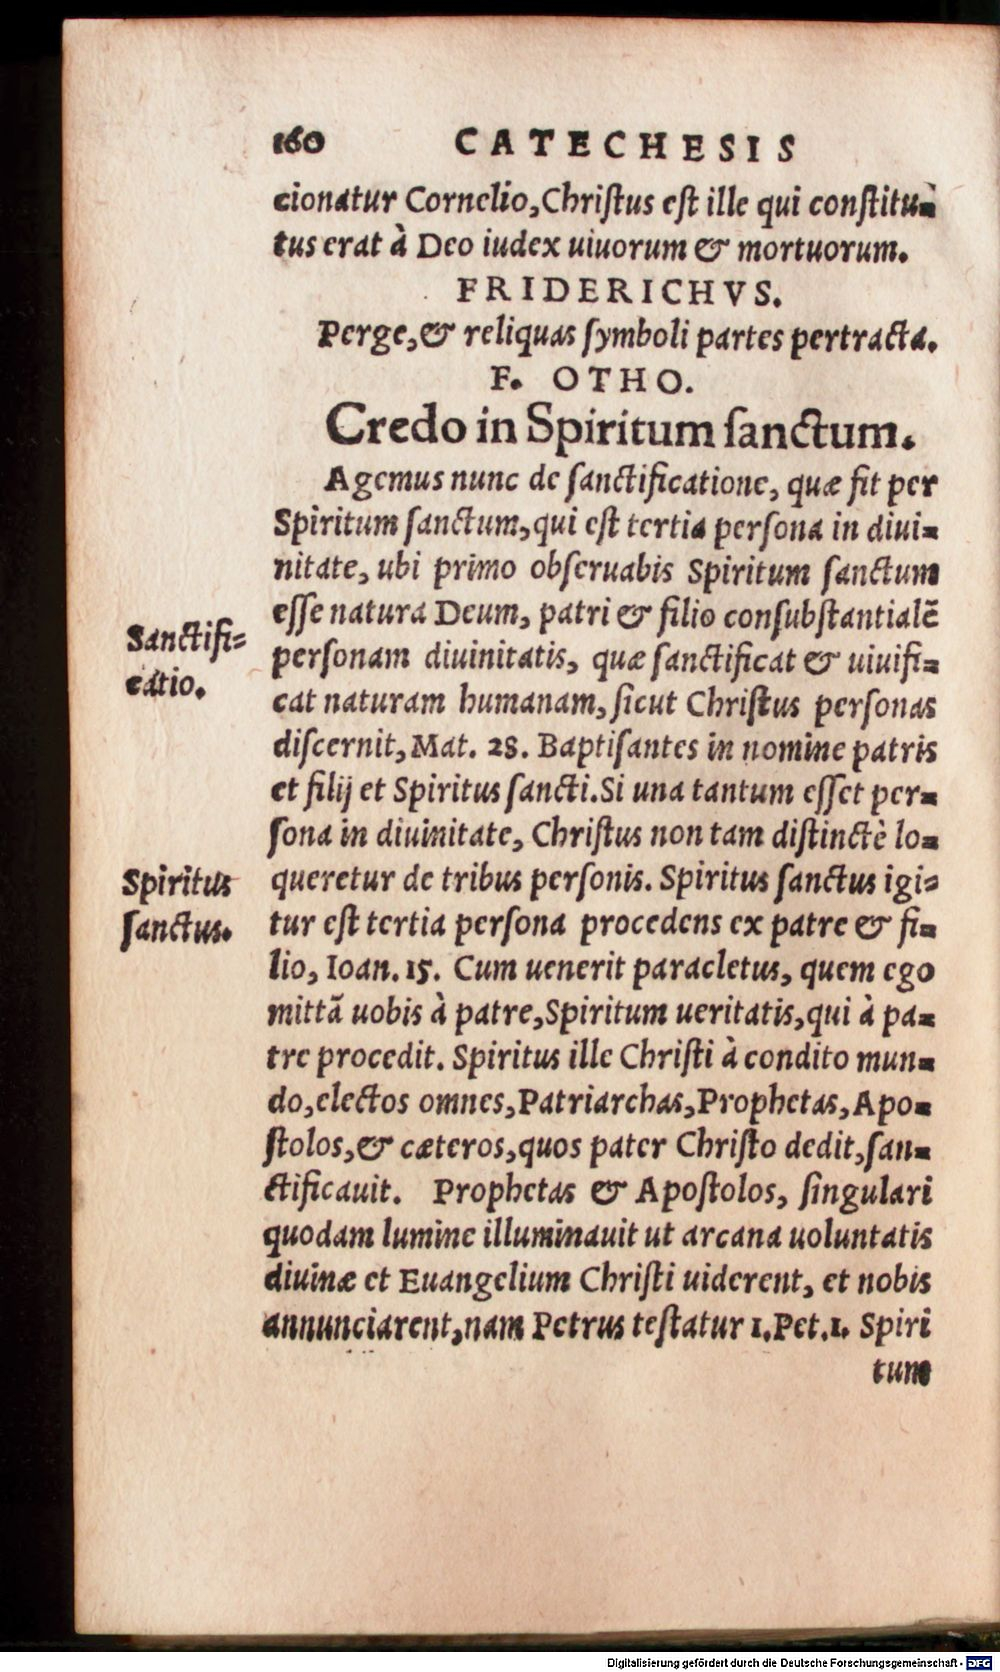 160 CATECHESIS
cionatur Cornelio, Christus est ille qui constitu-
tus erat à Deo iudex uiuorum & mortuorum.
FRIDERICHVS.
Perge, & reliquas symboli partes pertracta.
F. OTHO.
Credo in Spiritum sanctum.
Agemus nunc de sanctificatione, quæ fit per
Spiritum sanctum, qui est tertia persona in diui-
nitate, ubi primo obseruabis Spiritum sanctum
esse natura Deum, patri & filio consubstantialẽ
Sanctifi-
catio.
personam diuinitatis, quæ sanctificat & uiuifi-
cat naturam humanam, sicut Christus personas
discernit, Mat. 28. Baptisantes in nomine patris
et filij et Spiritus sancti. Si una tantum esset per-
sona in diuinitate, Christus non tam distinctè lo-
Spiritus
sanctus.
queretur de tribus personis. Spiritus sanctus igi-
tur est tertia persona procedens ex patre & fi-
lio, Ioan. 15. Cum uenerit paracletus, quem ego
mittã uobis à patre, Spiritum ueritatis, qui à pa-
tre procedit. Spiritus ille Christi à condito mun-
do, electos omnes, Patriarchas, Prophetas, Apo-
stolos, & cæteros, quos pater Christo dedit, san-
ctificauit. Prophetas & Apostolos, singulari
quodam lumine illuminauit ut arcana uoluntatis
diuinæ et Euangelium Christi uiderent, et nobis
annunciarent, nam Petrus testatur 1. Pet. 1. Spiri
tum
Digitalisierung gefördert durch die Deutsche Forschungsgemeinschaft - DFG